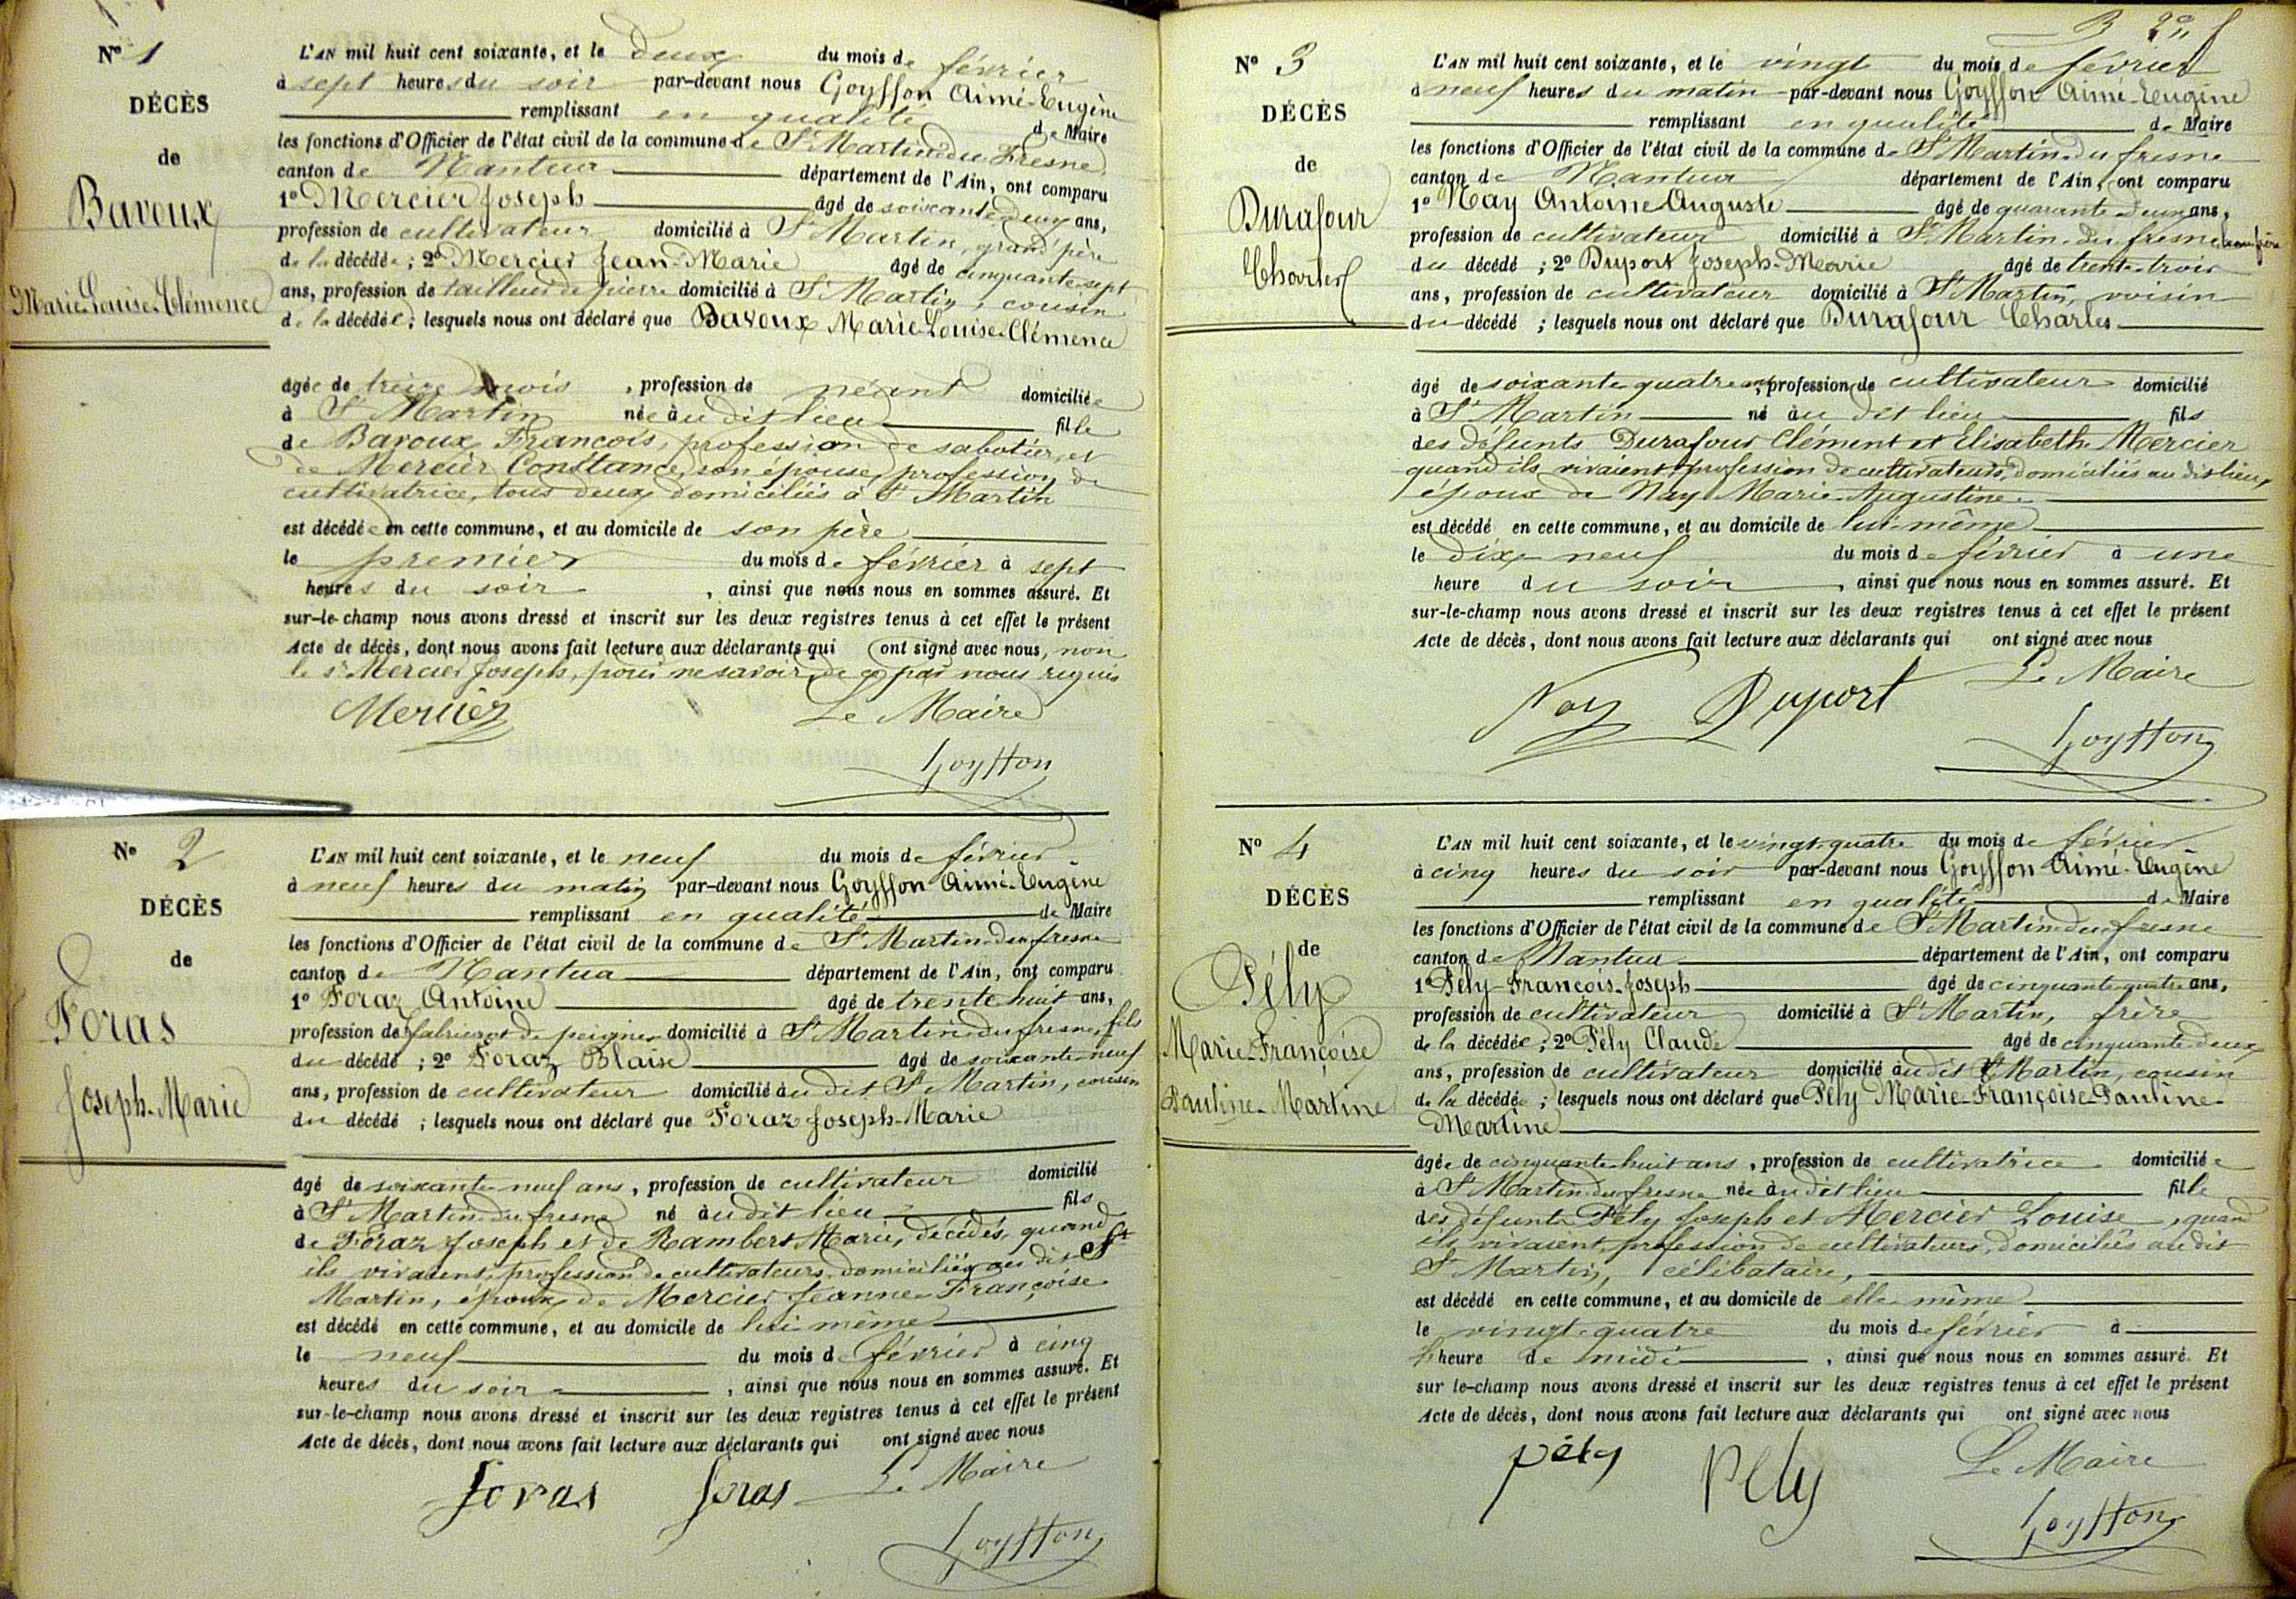 Nº 1
DÉCÈS
de
Bavoux
Marie-Louise-Clémence
L'AN mil huit cent soixante, et le deux du mois de février
à sept heures du soir par-devant nous Goyffon Aimé-Eugène
remplissant en qualité de Maire
les fonctions d'Officier de l'état civil de la commune de St Martin-du-Fresne
canton de Nantua département de l'Ain, ont comparu
1º Mercier Joseph âgé de soixante deux ans,
profession de cultivateur domicilié à St Martin, grand'père
de la décédée ; 2º Mercier Jean-Marie âgé de cinquante-sept
ans, profession de tailleur de pierre domicilié à St Martin, cousin
de la décédée ; lesquels nous ont déclaré que Bavoux Marie-Louise-Clémence
âgée de treize mois , profession de néant domiciliée
à St Martin née àu dit lieu fille
de Bavoux François, profession de sabotier, et
de Mercier Constance, son épouse, profession de
cultivatrice, tous deux domiciliés à St Martin
est décédée en cette commune, et au domicile de son père
le premier du mois de février à sept
heures du soir , ainsi que nous nous en sommes assuré. Et
sur-le-champ nous avons dressé et inscrit sur les deux registres tenus à cet effet le présent
Acte de décès, dont nous avons fait lecture aux déclarants qui ont signé avec nous, non
le sr Mercier Joseph, pour ne savoir, de ce par nous requis
Mercier Le Maire
Goyffon
Nº 2
DÉCÈS
de
Foras
Joseph-Marie
L'AN mil huit cent soixante, et le neuf du mois de février
à neuf heures du matin par-devant nous Goyffon Aimé-Eugène
remplissant en qualité de Maire
les fonctions d'Officier de l'état civil de la commune de St Martin-du-fresne
canton de Nantua département de l'Ain, ont comparu
1º Foraz Antoine âgé de trente huit ans,
profession de fabricant de peignes domicilié à St Martin-du-fresne, fils
du décédé ; 2º Foraz Blaise âgé de soixante-neuf
ans, profession de cultivateur domicilié àu dit St Martin, cousin
du décédé ; lesquels nous ont déclaré que Foraz Joseph-Marie
âgé de soixante neuf ans , profession de cultivateur domicilié
à St Martin du fresne né àu dit lieu fils
de Foraz Joseph et de Rambert Marie, décédés, quand
ils vivaient, profession de cultivateurs, domiciliés au dit St
Martin, époux de Mercier Jeanne-Françoise
est décédé en cette commune, et au domicile de lui-même
le neuf du mois de février à cinq
heures du soir , ainsi que nous nous en sommes assuré. Et
sur-le-champ nous avons dressé et inscrit sur les deux registres tenus à cet effet le présent
Acte de décès, dont nous avons fait lecture aux déclarants qui ont signé avec nous
foras foras Le Maire
Goyffon
Nº 3
DÉCÈS
de
Durafour
Charles
L'AN mil huit cent soixante, et le vingt du mois de février
à neuf heures du matin par-devant nous Goyffon Aimé-Eugène
remplissant en qualité de Maire
les fonctions d'Officier de l'état civil de la commune de St Martin-du-fresne
canton de Nantua département de l'Ain, ont comparu
1º Nay Antoine-Auguste âgé de quarante-deux ans,
profession de cultivateur domicilié à St Martin-du-fresne, beau-frère
du décédé ; 2º Duport Joseph-Marie âgé de trente-trois
ans, profession de cultivateur domicilié à St Martin, voisin
du décédé ; lesquels nous ont déclaré que Durafour Charles
âgé de soixante-quatre ans, profession de cultivateur domicilié
à St Martin né àu dit lieu fils
des défunts Durafour Clément et Elisabeth Mercier
quand ils vivaient, profession de cultivateurs, domiciliés au dit lieu,
époux de Nay Marie-Augustine
est décédé en cette commune, et au domicile de lui-même
le dix neuf du mois de février à une
heure du soir , ainsi que nous nous en sommes assuré. Et
sur-le-champ nous avons dressé et inscrit sur les deux registres tenus à cet effet le présent
Acte de décès, dont nous avons fait lecture aux déclarants qui ont signé avec nous
Nay Duport Le Maire
Goyffon
Nº 4
DÉCÈS
de
Pély
Marie-Françoise
Pauline-Martine
L'AN mil huit cent soixante, et le vingt-quatre du mois de février
à cinq heures du soir par-devant nous Goyffon Aimé-Eugène
remplissant en qualité de Maire
les fonctions d'Officier de l'état civil de la commune de St Martin-du-fresne
canton de Nantua département de l'Ain, ont comparu
1º Pély François-Joseph âgé de cinquante-quatre ans,
profession de cultivateur domicilié à St Martin, frère
de la décédée ; 2º Pély Claude âgé de cinquante-deux
ans, profession de cultivateur domicilié àu dit St Martin, cousin
de la décédée ; lesquels nous ont déclaré que Pély Marie-Françoise-Pauline-
Martine
âgée de cinquante-huit ans , profession de cultivatrice domiciliée
à St Martin-du-fresne née àu dit lieu fille
des défunts Pély Joseph et Mercier Louise, quand
ils vivaient, profession de cultivateurs, domiciliés au dit
St Martin, célibataire,
est décédé en cette commune, et au domicile de elle-même
le vingt-quatre du mois de février à
heure de midi , ainsi que nous nous en sommes assuré. Et
sur le-champ nous avons dressé et inscrit sur les deux registres tenus à cet effet le présent
Acte de décès, dont nous avons fait lecture aux déclarants qui ont signé avec nous
pély Pely Le Maire
Goyffon